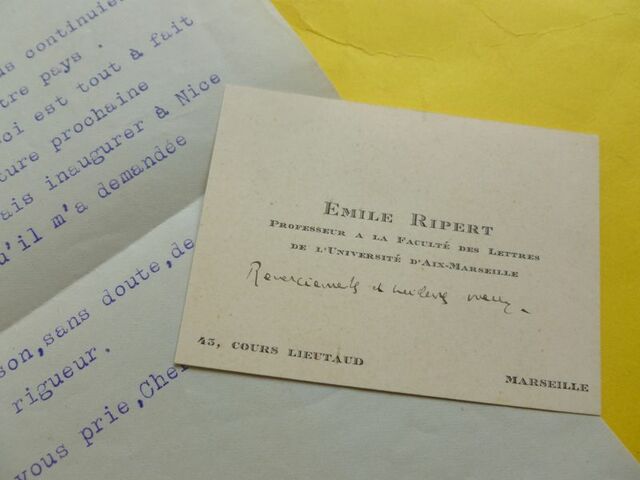 us continuie
tre pays .
ci est tout à fait
ture prochaine
ais inaugurer à Nice
u'il m'a demandée
son,sans doute,de
rigueur.
vous prie,Cher
EMILE RIPERT
PROFESSEUR A LA FACULTÉ DES LETTRES
DE L'UNIVERSITÉ D'AIX-MARSEILLE
Remerciements et meilleurs vœux.
43, COURS LIEUTAUD
MARSEILLE